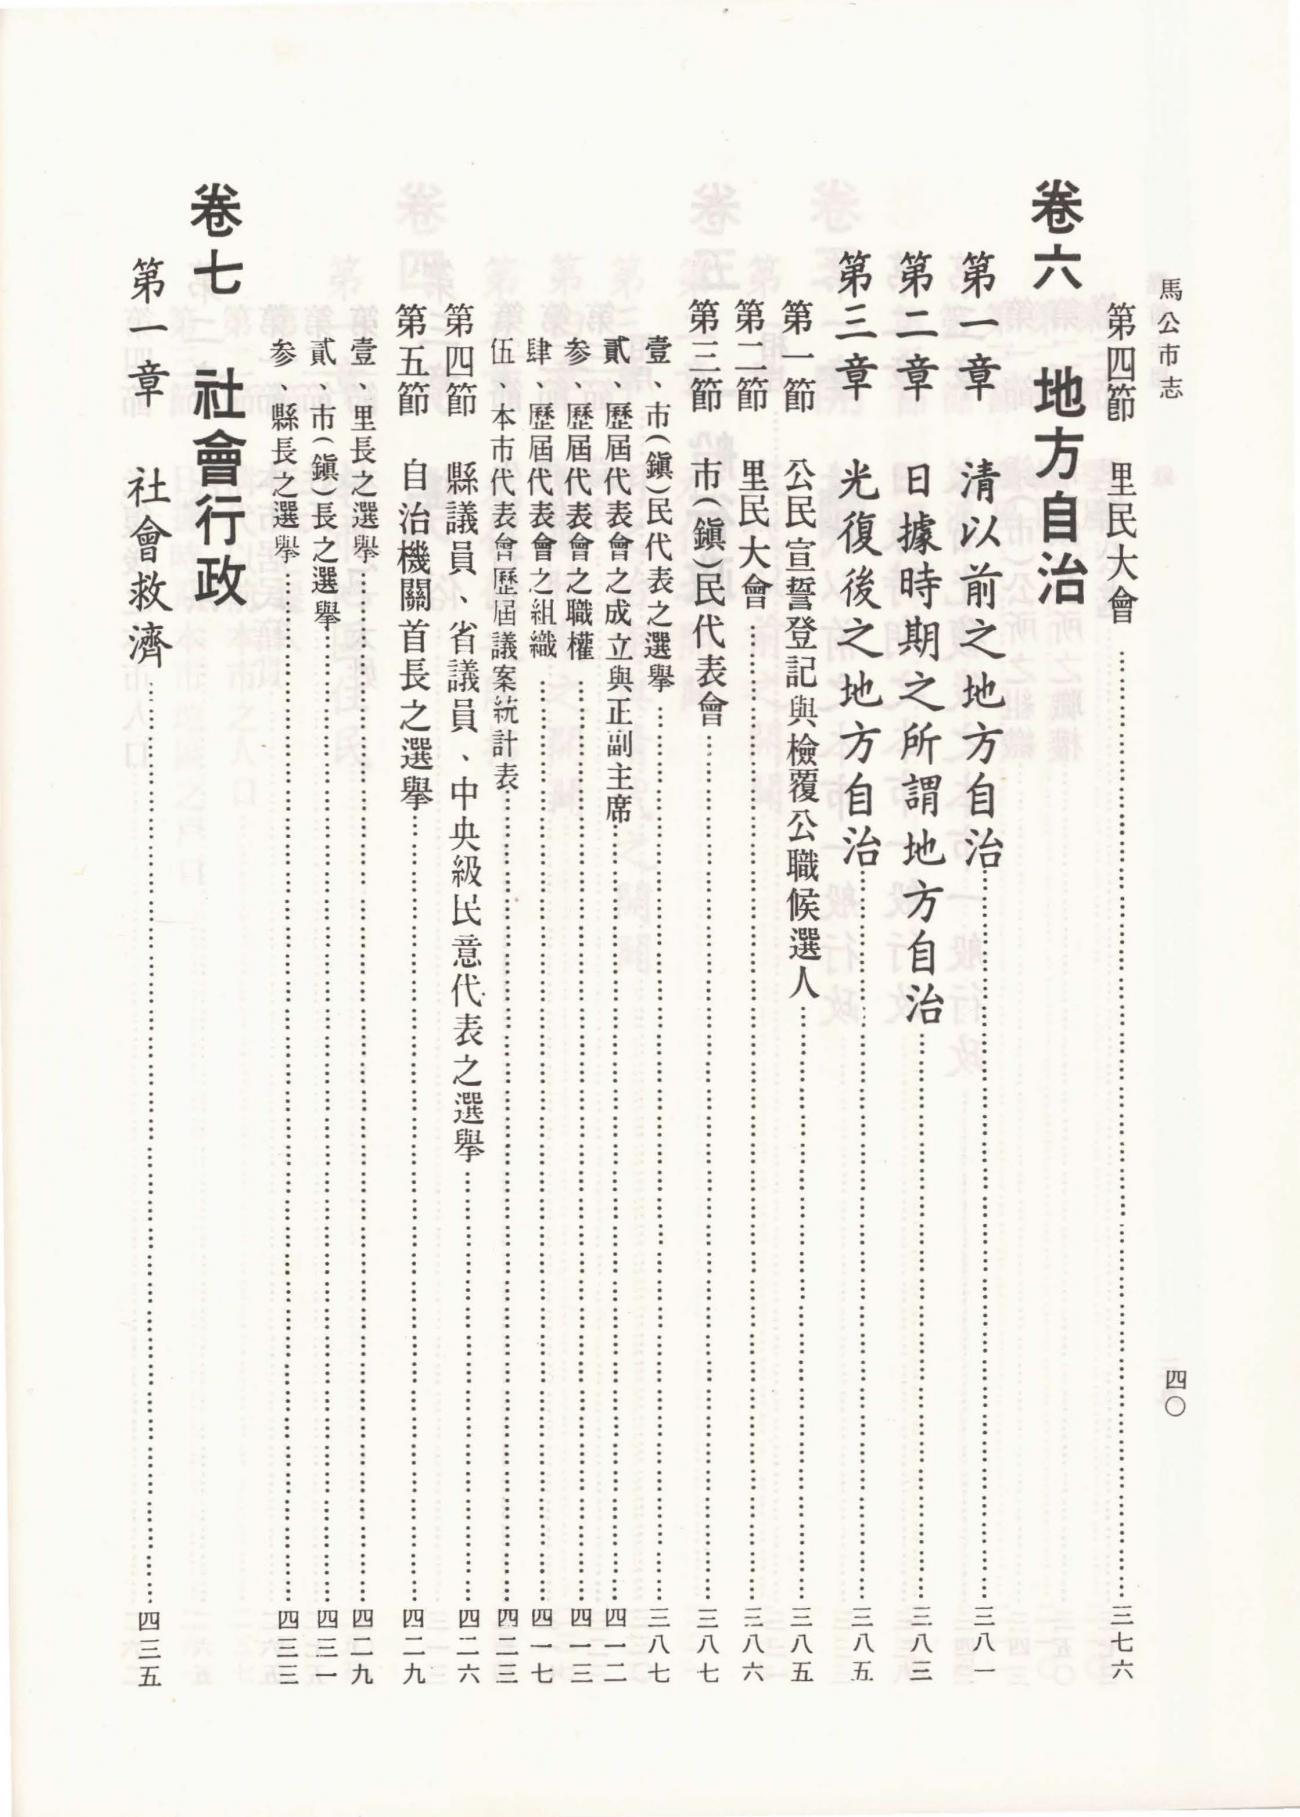 馬公市志
四〇
第四節 里民大會……三七六
卷六 地方自治
第一章 清以前之地方自治……三八一
第二章 日據時期之所謂地方自治……三八三
第三章 光復後之地方自治……三八五
第一節 公民宣誓登記與檢覆公職候選人……三八五
第二節 里民大會……三八六
第三節 市(鎮)民代表會……三八七
壹、市(鎮)民代表之選舉……三八七
貳、歷屆代表會之成立與正副主席……四一二
参、歷屆代表會之職權……四一三
肆、歷屆代表會之組織……四一七
伍、本市代表會歷屆議案統計表……四二三
第四節 縣議員、省議員、中央級民意代表之選舉……四二六
第五節 自治機關首長之選舉……四二九
壹、里長之選舉……四二九
貳、市(鎮)長之選舉……四三一
参、縣長之選舉……四三三
卷七 社會行政
第一章 社會救濟……四三五